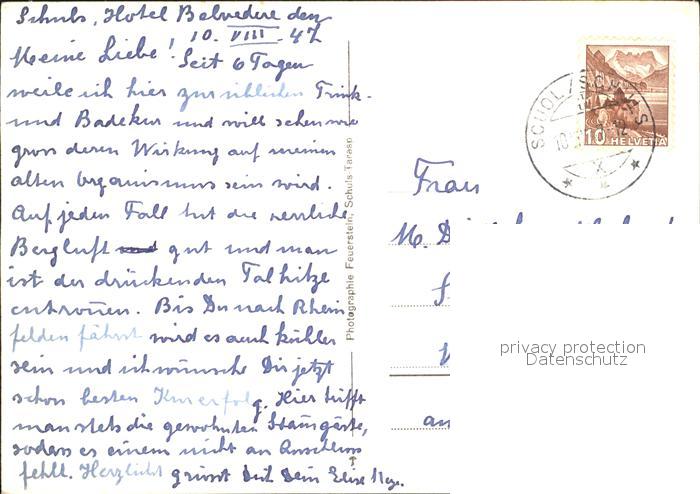 Schuls, Hotel Belvedere den
10. VIII. 47
Meine Liebe! Seit 6 Tagen
weile ich hier zur üblichen Trink-
und Badekur und will sehen wie
gross deren Wirkung auf meinen
alten Organismus sein wird.
Auf jeden Fall tut die herrliche
Bergluft gut und man
ist der drückenden Talhitze
entronnen. Bis Du nach Rhein
felden fährst wird es auch kühler
sein und ich wünsche Dir jetzt
schon besten Kurerfolg. Hier trifft
man stets die gewohnten Stammgäste,
sodass es einem nicht an Anschluss
fehlt. Herzlichst grüsst Dich Dein Elise
Photographie Feuerstein, Schuls-Tarasp
SCUOL/SCHULS
10
HELVETIA
Frau
M. D
an
privacy protection
Datenschutz